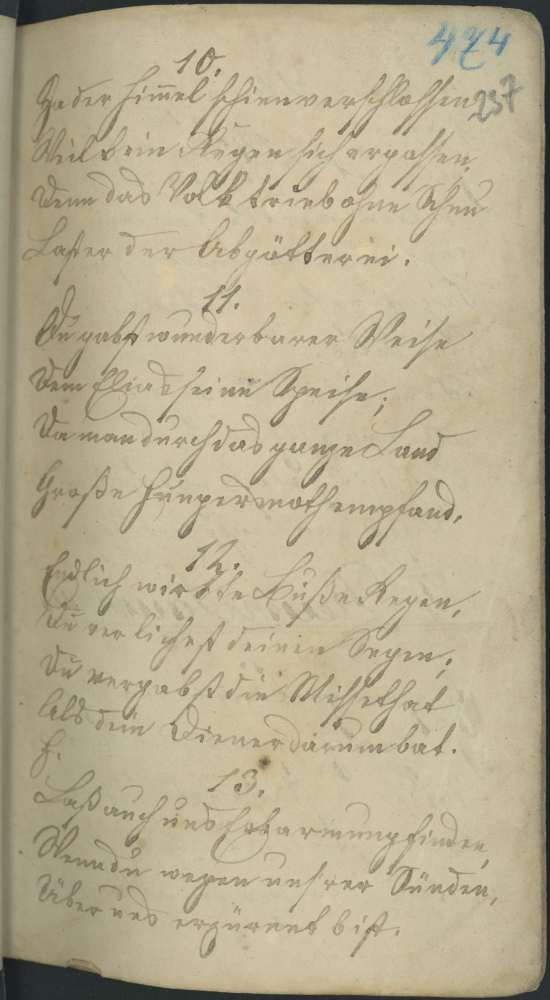 474
10.
Ja der Himmel schien verschlossen,
237
Weil kein Regen sich ergossen,
Denn das Volk trieb ohne Scheu
Laster der Abgötterei.
11.
Du gabst wunderbarer Weise
Dem Elias seine Speise;
Da man durch das ganze Land
Große Hungersnoth empfand.
12.
Endlich wirkte Buße Regen,
Du verliehest deinen Segen;
Du vergabst die Missethat
Als dein Diener darum bat.
13.
Laß auch uns Erbarmung finden,
Wenn du wegen unsrer Sünden,
Über uns erzürnet bist.